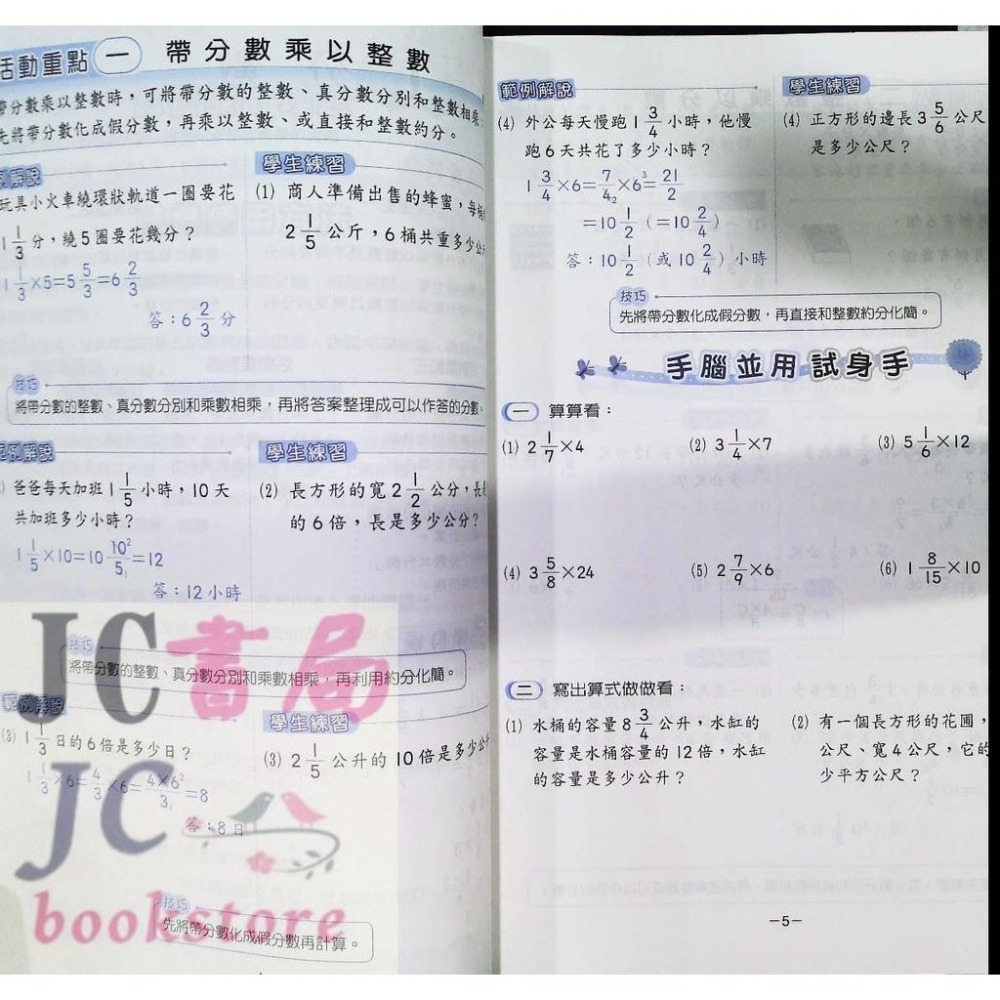 活動重點 一 帶分數乘以整數
帶分數乘以整數時,可將帶分數的整數、真分數分別和整數相乘
先將帶分數化成假分數,再乘以整數、或直接和整數約分。
範例解說
玩具小火車繞環狀軌道一圈要花
1 1/3 分,繞5圈要花幾分?
1 1/3×5=5 5/3=6 2/3
答:6 2/3 分
學生練習
(1) 商人準備出售的蜂蜜,每桶
2 1/5 公斤,6桶共重多少公
技巧
將帶分數的整數、真分數分別和乘數相乘,再將答案整理成可以作答的分數。
範例解說
爸爸每天加班 1 1/5 小時,10天
共加班多少小時?
1 1/5×10=10 10²/5₁=12
答:12小時
學生練習
(2) 長方形的寬 2 1/2 公分,長
的6倍,長是多少公分?
技巧
將帶分數的整數、真分數分別和乘數相乘,再利用約分化簡。
範例解說
(3) 1 1/3 日的6倍是多少日?
1 1/3×6=4/3×6=4×6²/3₁=8
答:8日
學生練習
(3) 2 1/5 公升的10倍是多少公
技巧
先將帶分數化成假分數再計算。
JC書局
JC
bookstore
範例解說
(4) 外公每天慢跑 1 3/4 小時,他慢
跑6天共花了多少小時?
1 3/4×6=7/4₂×6³=21/2
=10 1/2 (=10 2/4)
答:10 1/2 (或 10 2/4) 小時
學生練習
(4) 正方形的邊長 3 5/6 公尺
是多少公尺?
技巧
先將帶分數化成假分數,再直接和整數約分化簡。
手腦並用試身手
一 算算看:
(1) 2 1/7×4
(2) 3 1/4×7
(3) 5 1/6×12
(4) 3 5/8×24
(5) 2 7/9×6
(6) 1 8/15×10
二 寫出算式做做看:
(1) 水桶的容量 8 3/4 公升,水缸的
容量是水桶容量的12倍,水缸
的容量是多少公升?
(2) 有一個長方形的花圃,
公尺、寬4公尺,它的
少平方公尺?
-5-